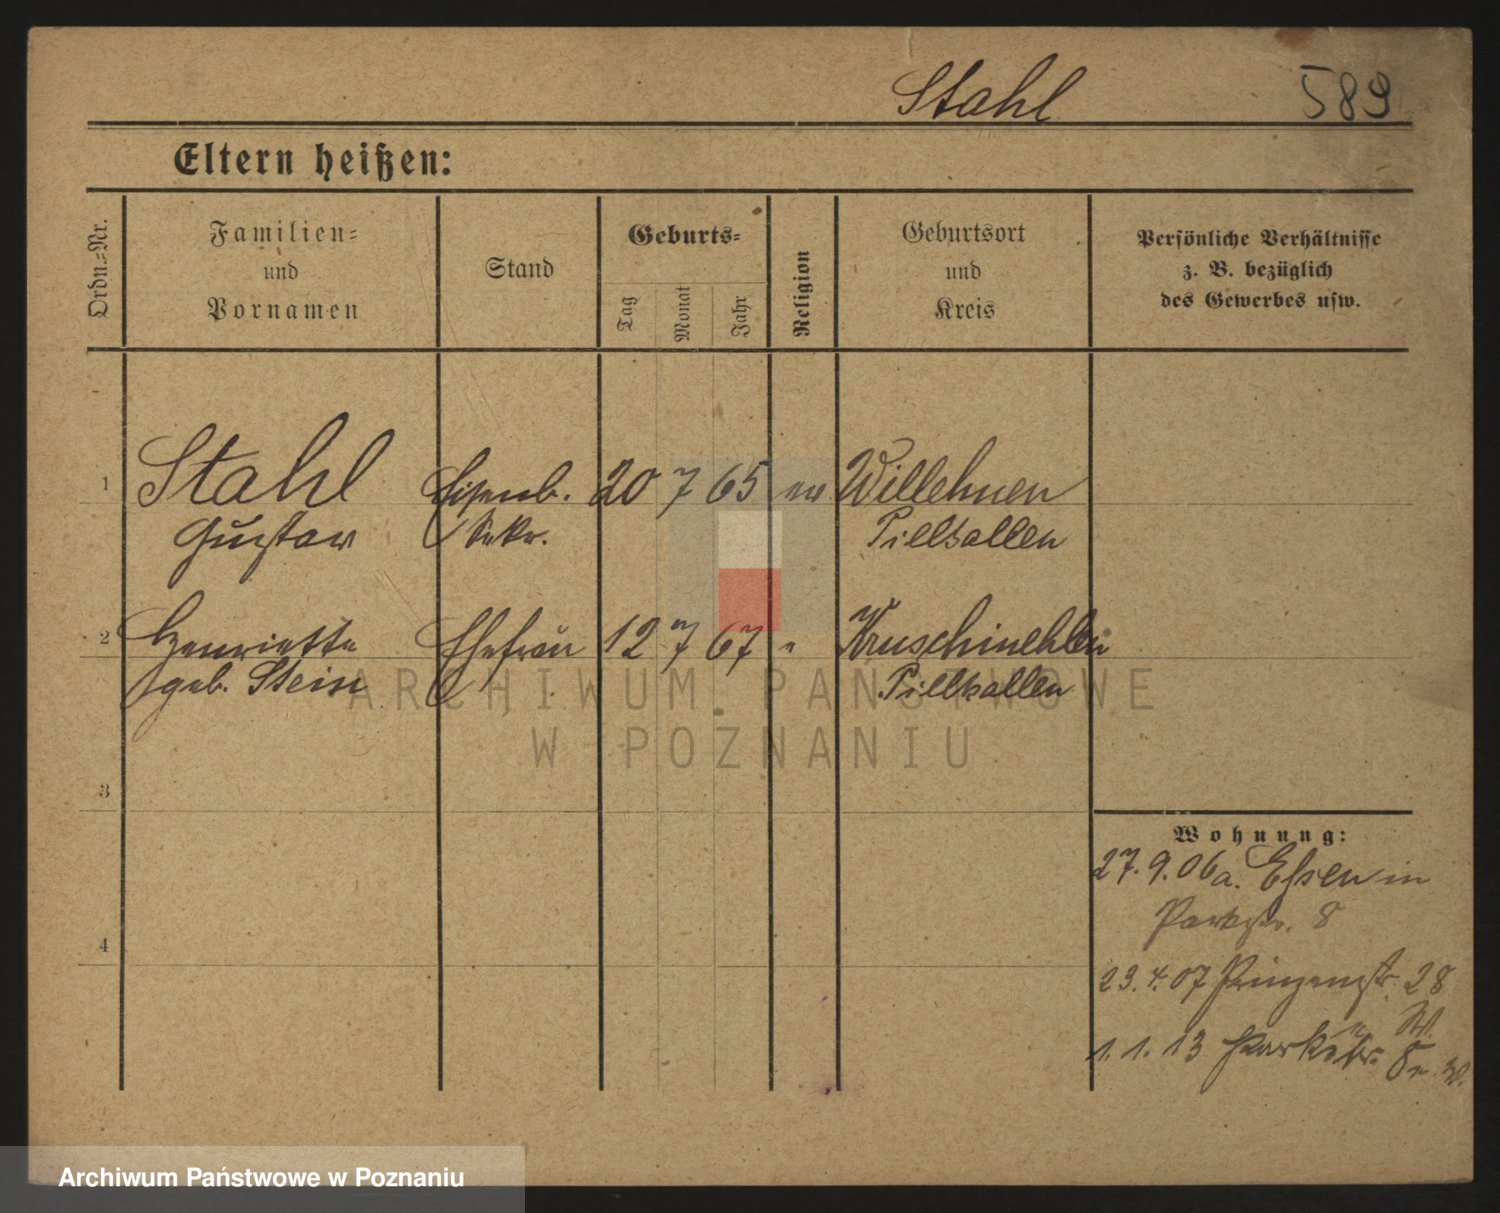 Stahl 589
Eltern heißen:
Ordn.-Nr.
Familien-
und
Vornamen
Stand
Geburts-
Tag
Monat
Jahr
Religion
Geburtsort
und
Kreis
Persönliche Verhältnisse
z. B. bezüglich
des Gewerbes usw.
1 Stahl Eisenb. 20 7 65 ev Willehnen
Gustav Sekr. Pillkallen
2 Henriette Ehefrau 12 7 67 " Kruschinehlen
geb. Stein Pillkallen
ARCHIWUM PAŃSTWOWE
W POZNANIU
3
Wohnung:
27.9.06 a. Essen in
Parkstr. 8
4
23.4.07 Prinzenstr. 28
W.
1.1.13 Parkstr. 8
Archiwum Państwowe w Poznaniu